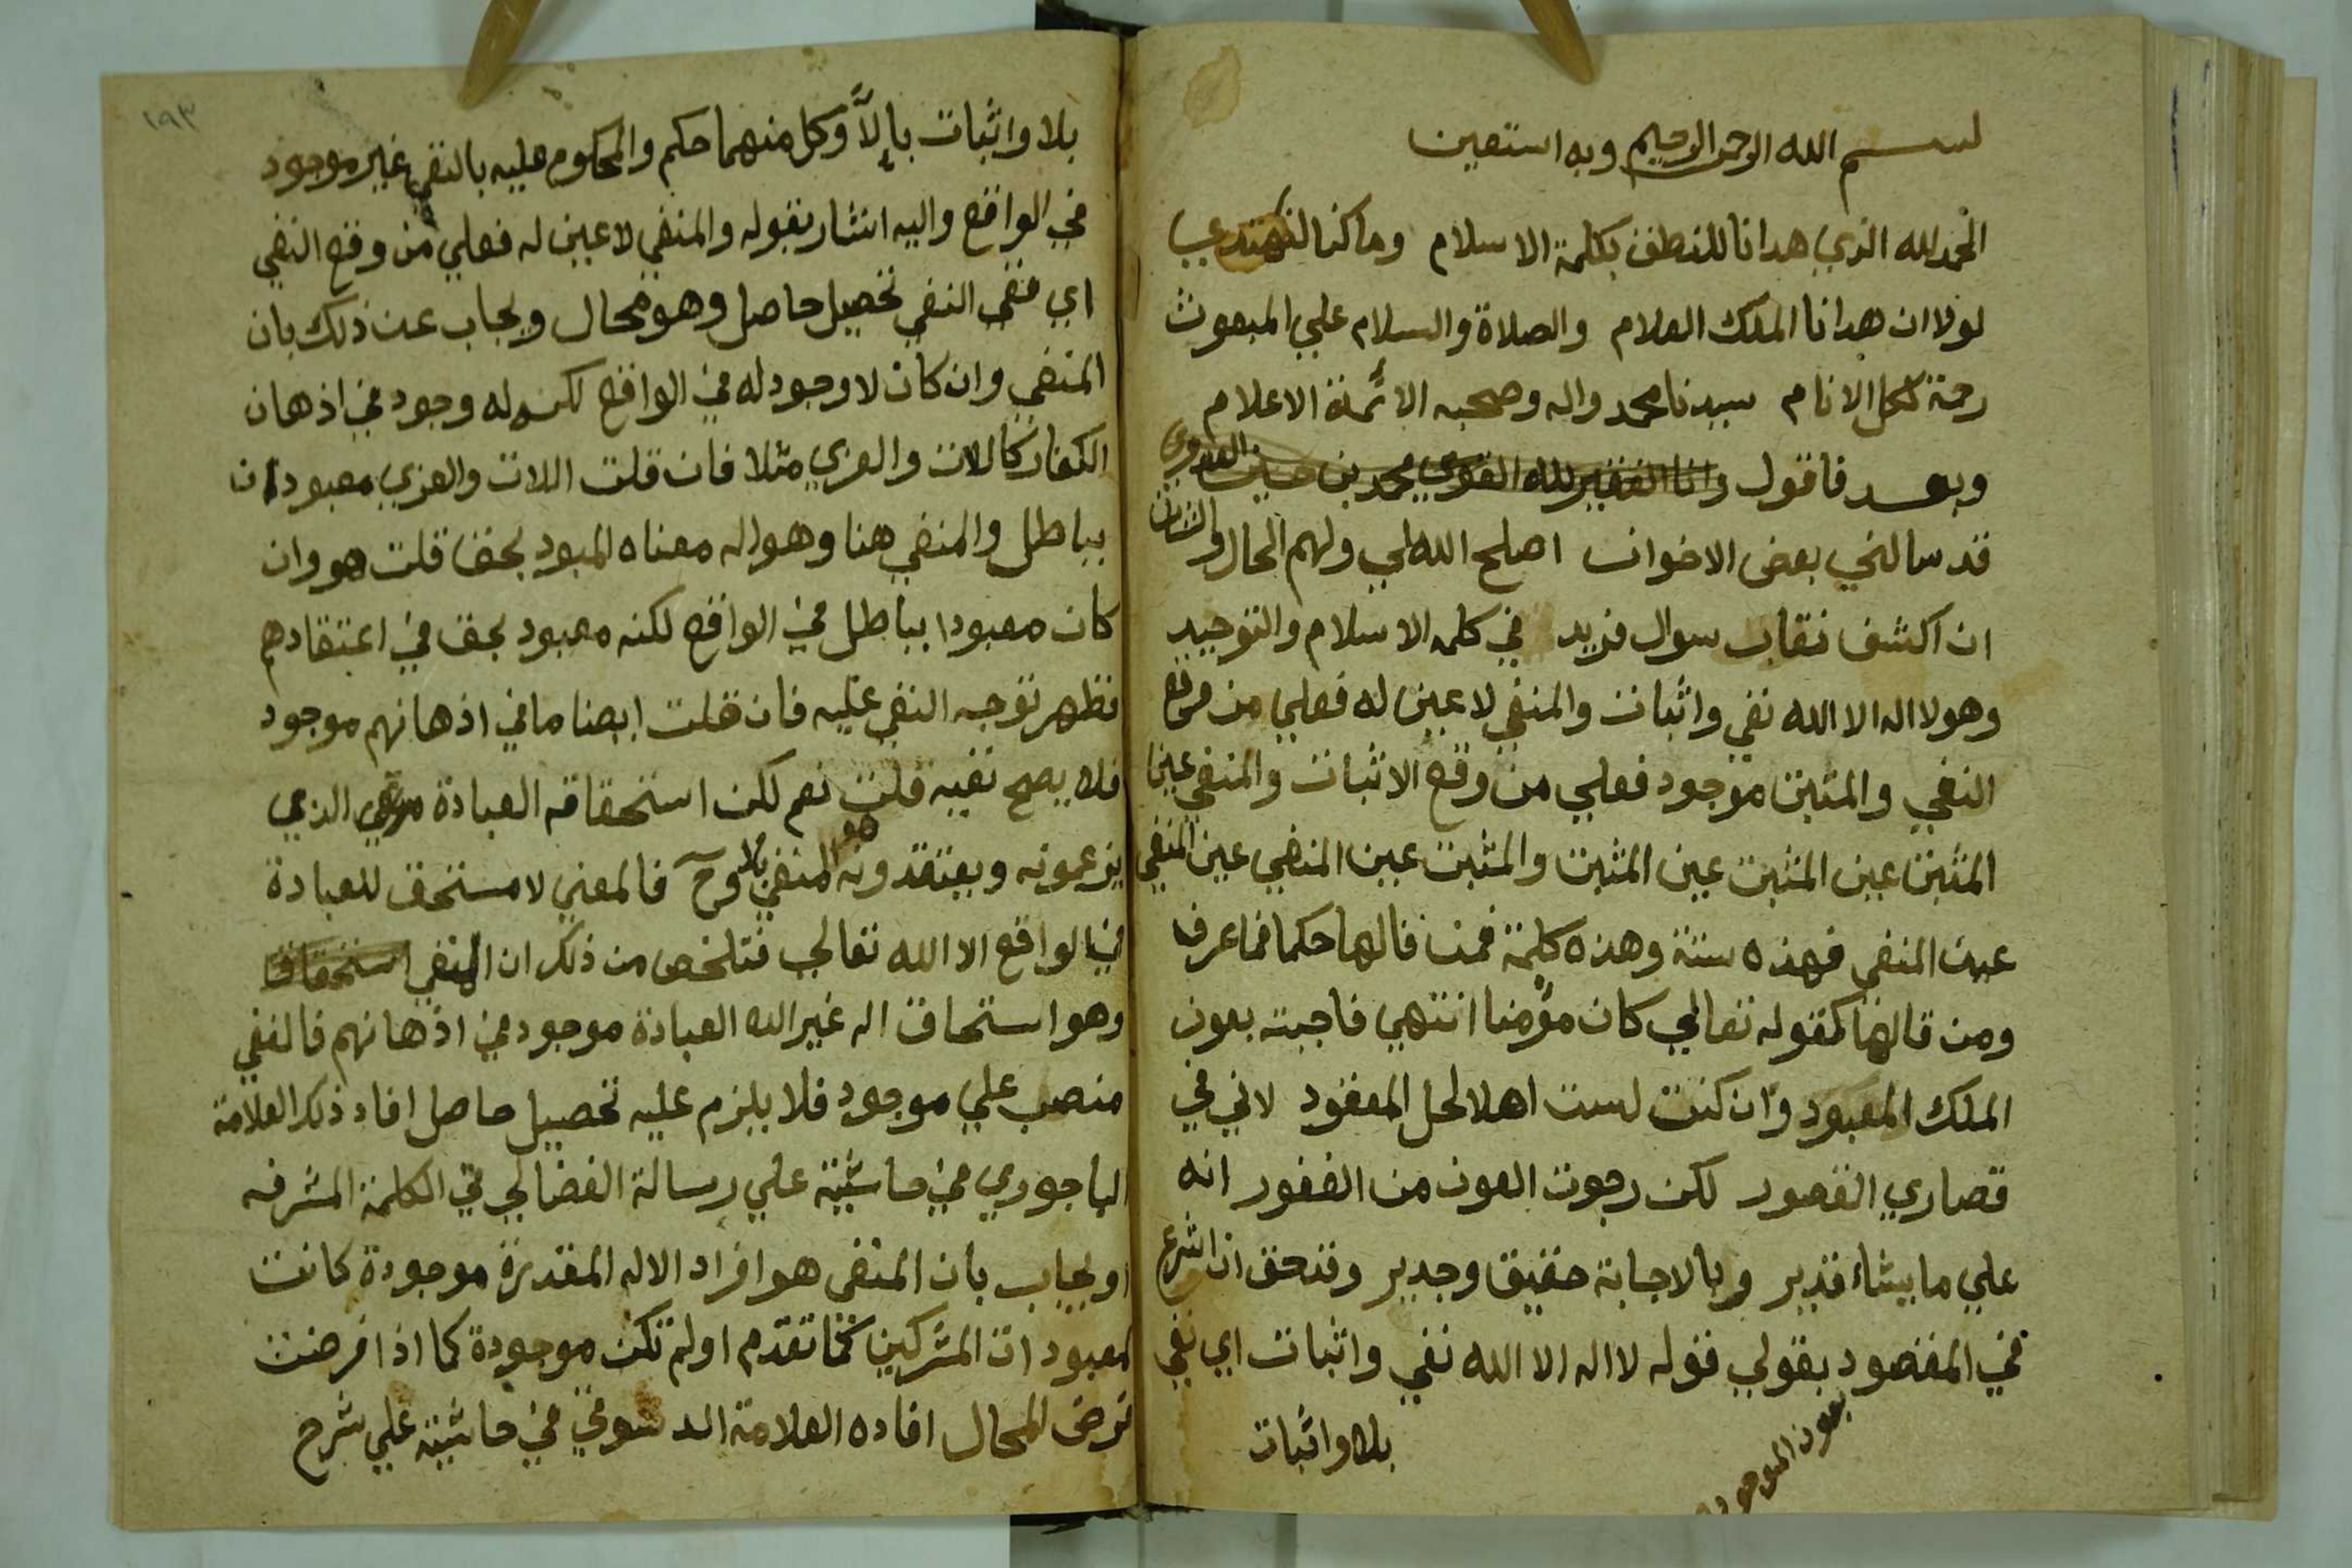 بسم الله الرحمن الرحيم وبه استعين
الحمد لله الذي هدانا للنطق بكلمة الاسلام وما كنا لنهتدي
لولا ان هدانا الملك العلام والصلاة والسلام علي المبعوث
رحمة لكل الانام سيدنا محمد واله وصحبه الائمة الاعلام
وبعد فاقول وانا الفقير لله القوي محمد بن حسين
قد سالني بعض الاخوان اصلح الله لي ولهم الحال والشان
ان اكشف نقاب سوال فريد في كلمه الاسلام والتوحيد
وهو لا اله الا الله نفي واثبات والمنفي لا عين له فعلي من وقع
النفي والمثبت موجود فعلي من وقع الاثبات والمنفي عين
المثبت عين المثبت عين المثبت والمثبت عين المنفي عين المنفي
عين المنفي فهذه ستة وهذه كلمة فمن قالها حكما فما عرف
ومن قالها كقوله تعالي كان مؤمنا انتهي فاجبته بعون
الملك المعبود وان كنت لست اهلا لحل المعقود لاني في
قصاري القصور لكن رجوت العون من الغفور انه
علي ما يشاء قدير وبالاجابة حقيق وجدير وقد حق ان اشرع
في المقصود بقولي قوله لا اله الا الله نفي واثبات اي نفي
بعون
بلا واثبات
١٩٣
بلا واثبات بإلاَّ وكل منهما حكم والمحكوم عليه بالنفي غير موجود
في الواقع واليه اشار بقوله والمنفي لا عين له فعلي من وقع النفي
اي فنفي النفي تحصيل حاصل وهو محال ويجاب عن ذلك بان
المنفي وان كان لا وجود له في الواقع لكن له وجود في اذهان
الكفار كاللات والعزي مثلا فان قلت اللات والعزي معبودان
بباطل والمنفي هنا وهو اله معناه المعبود بحق قلت هو وان
كان معبودا بباطل في الواقع لكنه معبود بحق في اعتقادهم
فظهر توجه النفي عليه فان قلت ايضا ما في اذهانهم موجود
فلا يصح نفيه قلت نعم لكن استحقاقه العبادة الذي
يزعمونه ويعتقدونه هو المنفي بلا وح فالمعني لا مستحق للعبادة
في الواقع الا الله تعالي فتلخص من ذلك ان المنفي استحقاق
وهو استحاق اله غير الله العبادة موجود في اذهانهم فالنفي
منصب علي موجود فلا يلزم عليه تحصيل حاصل افاد ذلك العلامة
الباجوري في حاشية علي رسالة الفضالي في الكلمة المشرفه
او يجاب بان المنفي هو افراد الاله المقدرة موجودة كانت
كمعبودات المشركين كما تقدم او لم تكن موجودة كما اذا فرضت
فرض المحال افاده العلامة الدسوقي في حاشية علي شرح